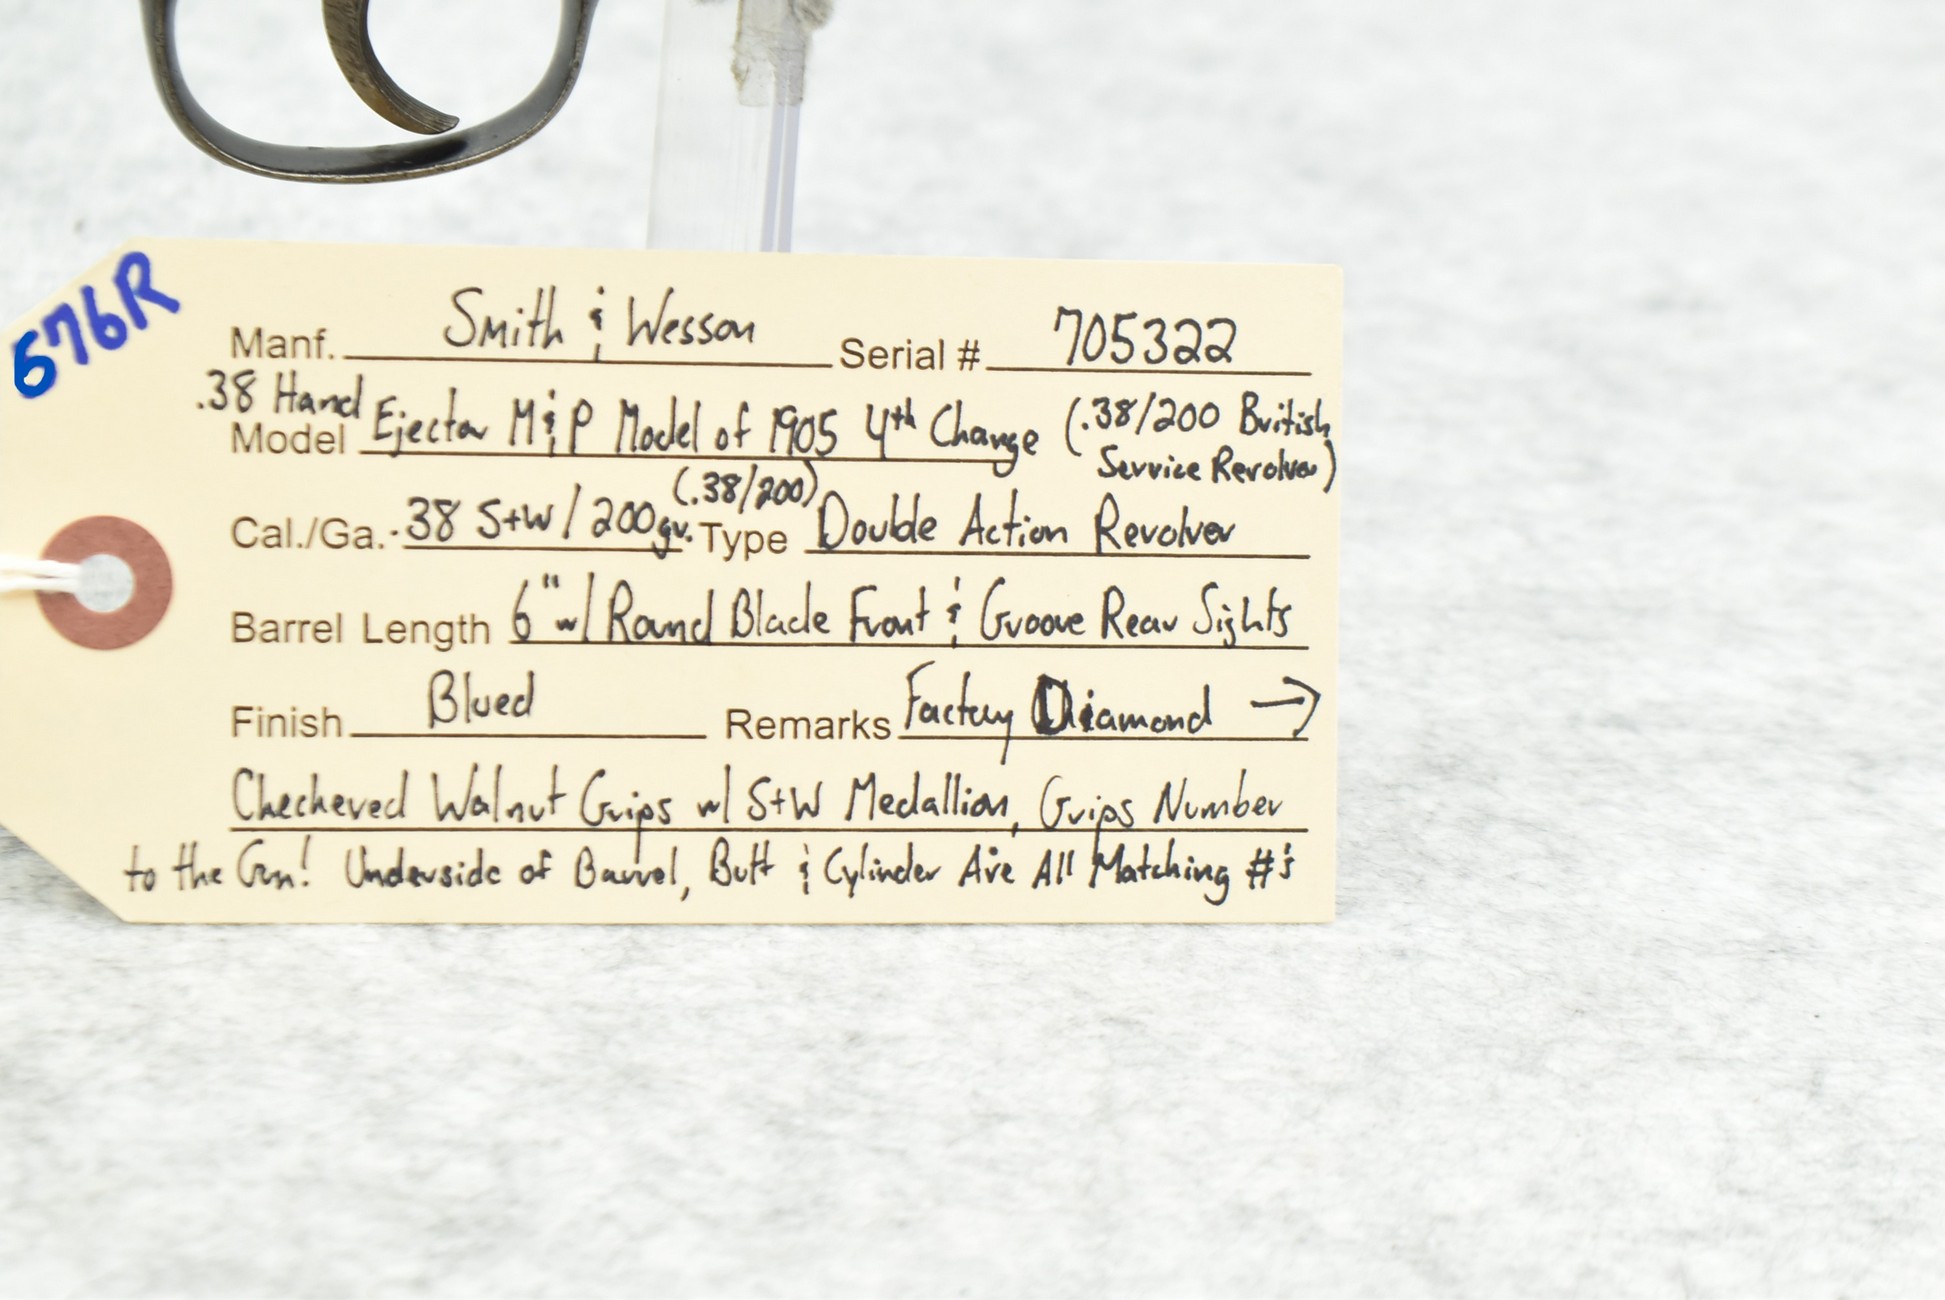 676R
Manf. Smith & Wesson Serial # 705322
.38 Hand
Model Ejector M&P Model of 1905 4th Change (.38/200 British
Service Revolver)
(.38/200)
Cal./Ga. .38 S+W / 200gr. Type Double Action Revolver
Barrel Length 6" w/ Round Blade Front & Groove Rear Sights
Finish Blued Remarks Factory Diamond →
Checkered Walnut Grips w/ S+W Medallion, Grips Number
to the Gun! Underside of Barrel, Butt & Cylinder Are All Matching #'s